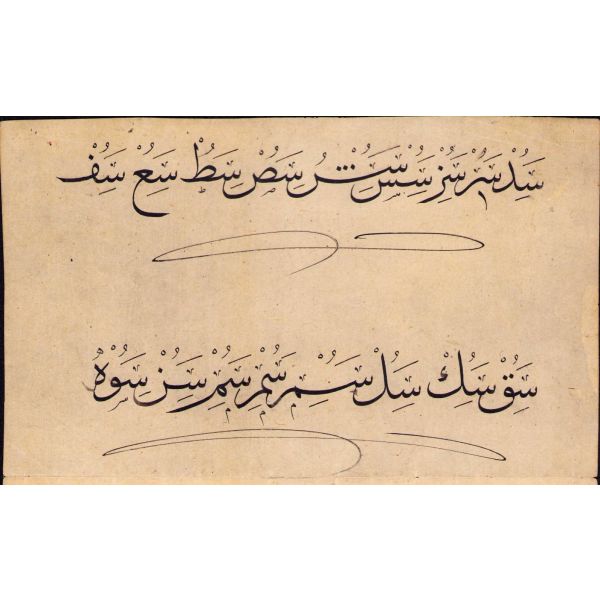 سد سر سز سس سش سص سط سع سف
سق سك سل سم سم سم سن سوه